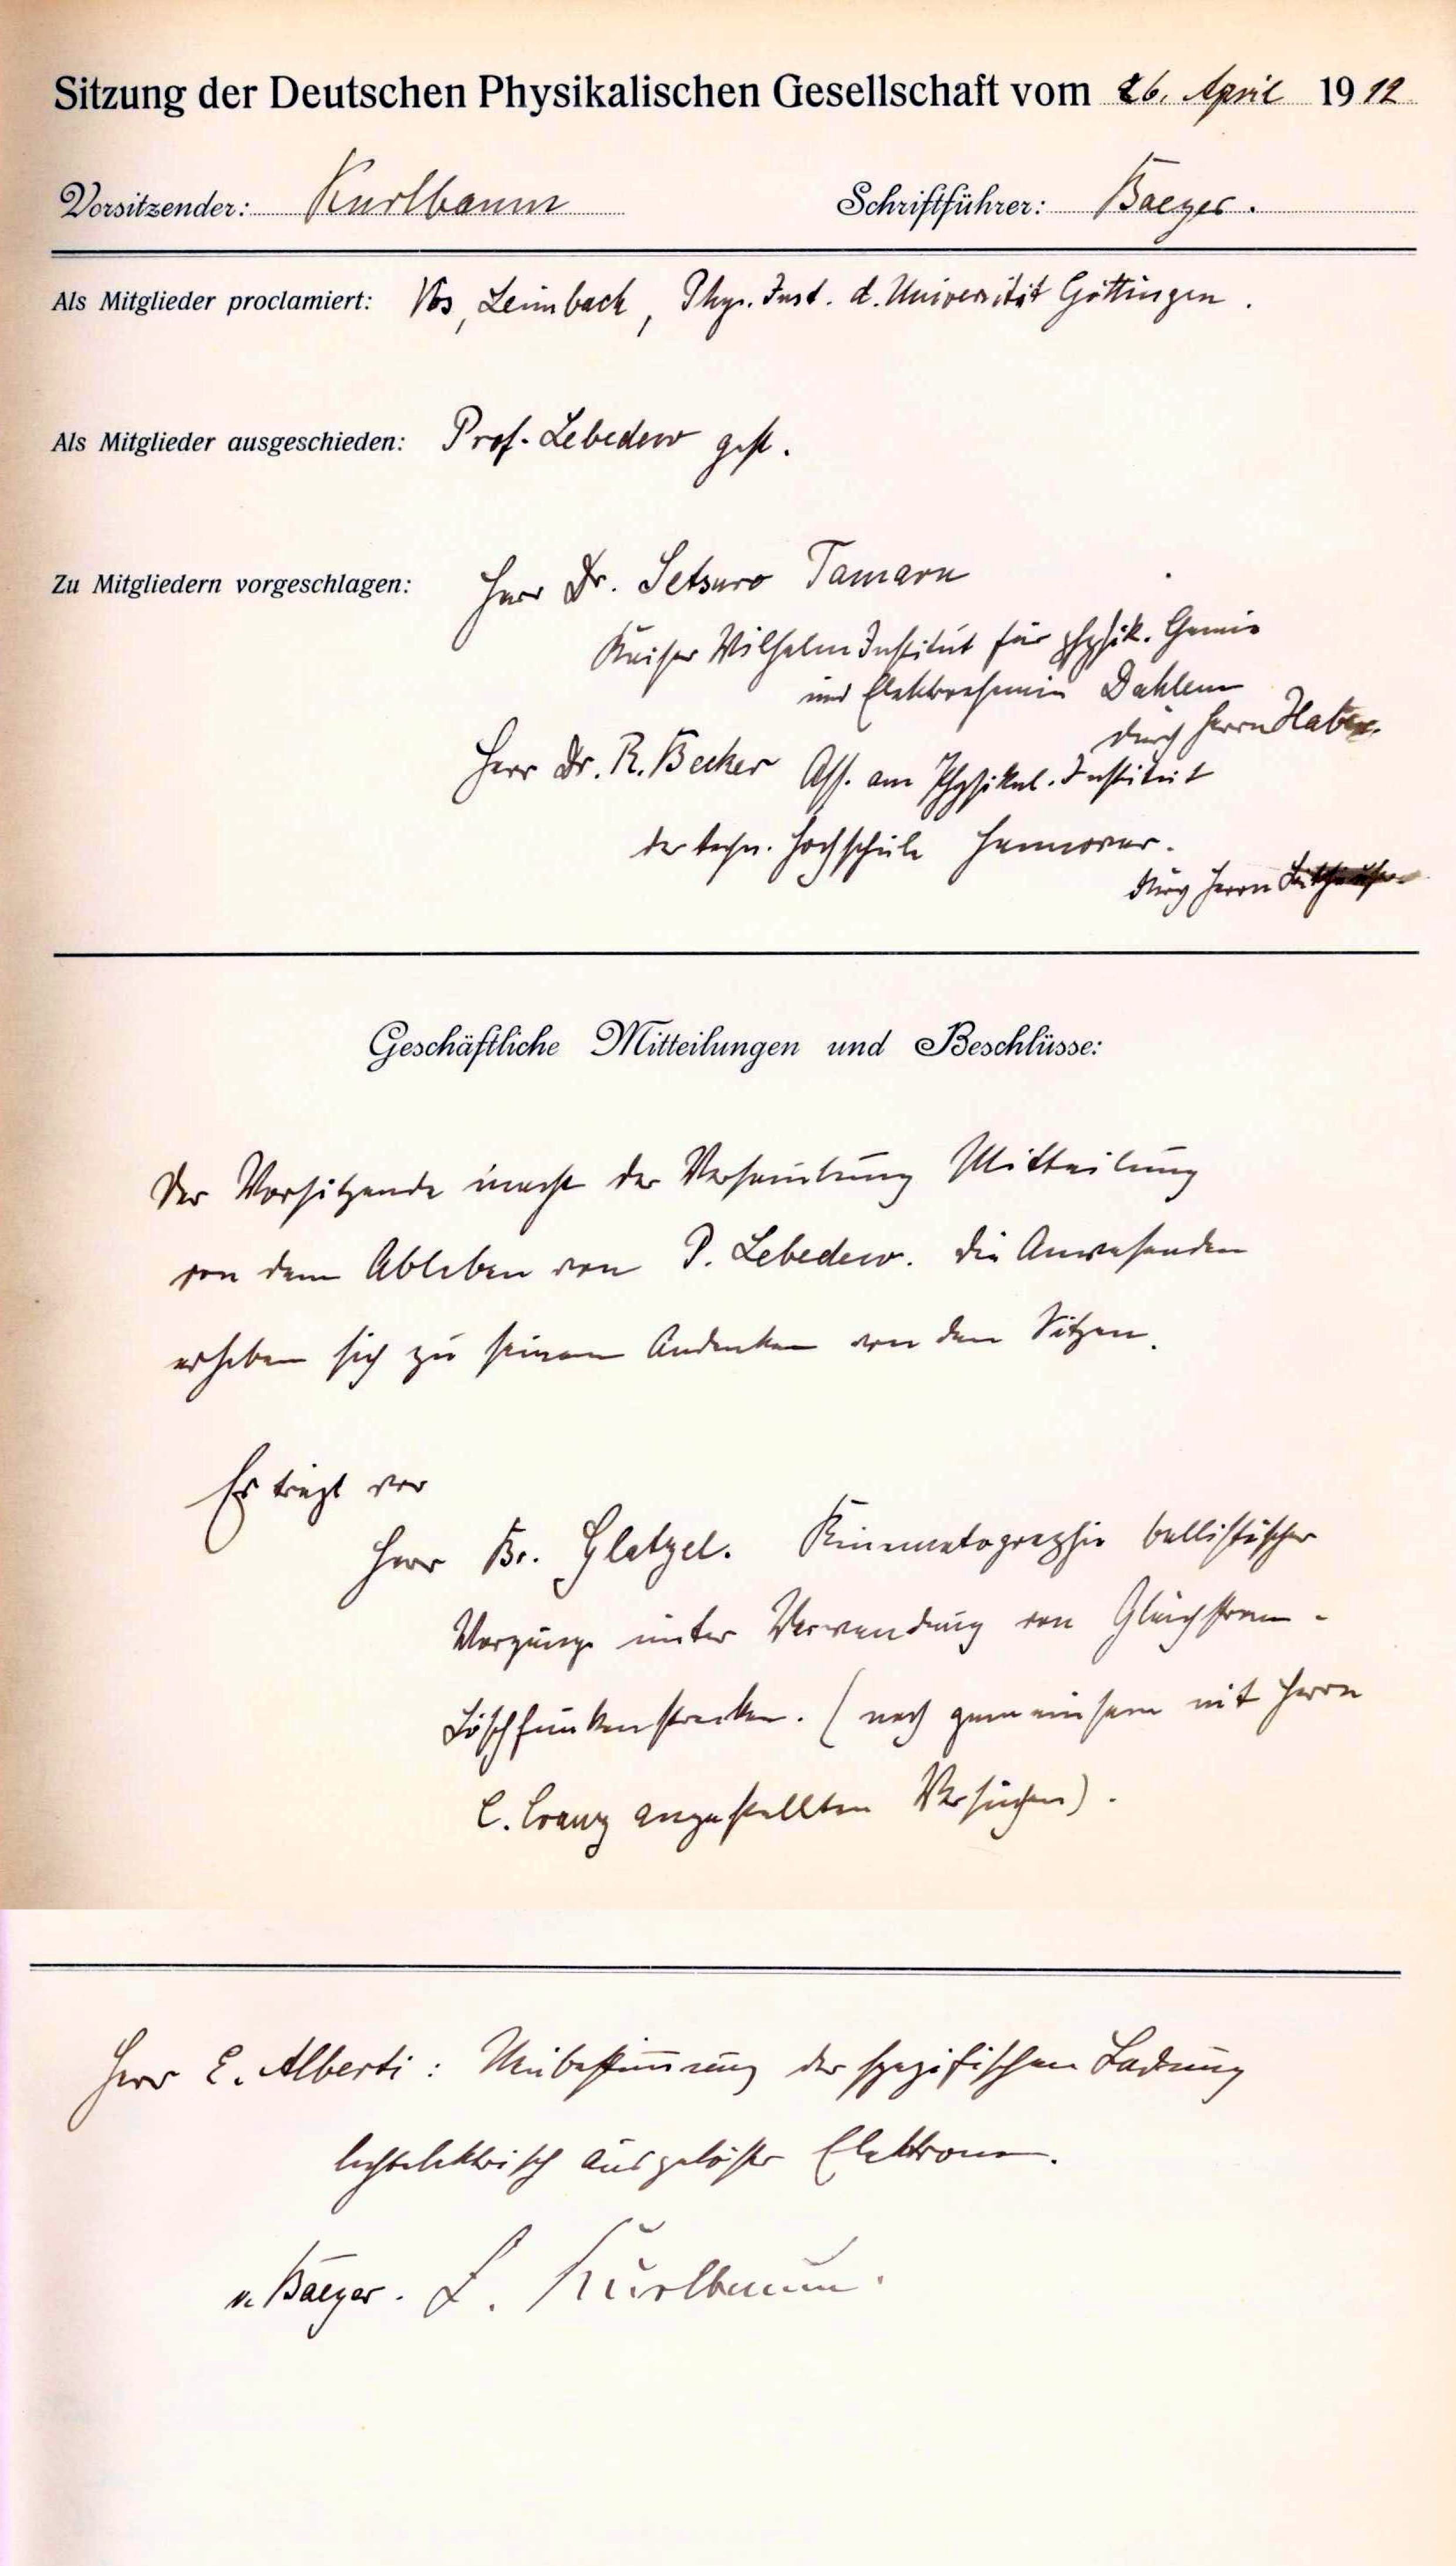 Sitzung der Deutschen Physikalischen Gesellschaft vom 26. April 1912
Vorsitzender: Kurlbaum Schriftführer: Baeyer.
Als Mitglieder proclamiert: Vos, Leimbach, Phys. Inst. d. Universität Göttingen.
Als Mitglieder ausgeschieden: Prof. Lebedew gest.
Zu Mitgliedern vorgeschlagen: Herr Dr. Setsuro Tamaru
Kaiser Wilhelm Institut für physik. Chemie
und Elektrochemie Dahlem
durch Herrn Haber.
Herr Dr. R. Becker Ass. am Physikal. Institut
der techn. Hochschule Hannover.
durch Herrn
Geschäftliche Mitteilungen und Beschlüsse:
Der Vorsitzende macht der Versammlung Mitteilung
von dem Ableben von P. Lebedew. Die Anwesenden
erheben sich zu seinem Andenken von den Sitzen.
Es trägt vor
Herr Br. Glatzel. Kinematographie ballistischer
Vorgänge unter Verwendung von Gleichstrom-
Löschfunkenstrecken. (nach gemeinsam mit Herrn
C. Cranz angestellten Versuchen).
Herr E. Alberti: Neubestimmung der spezifischen Ladung
lichtelektrisch ausgelöster Elektronen.
v. Baeyer. F. Kurlbaum.